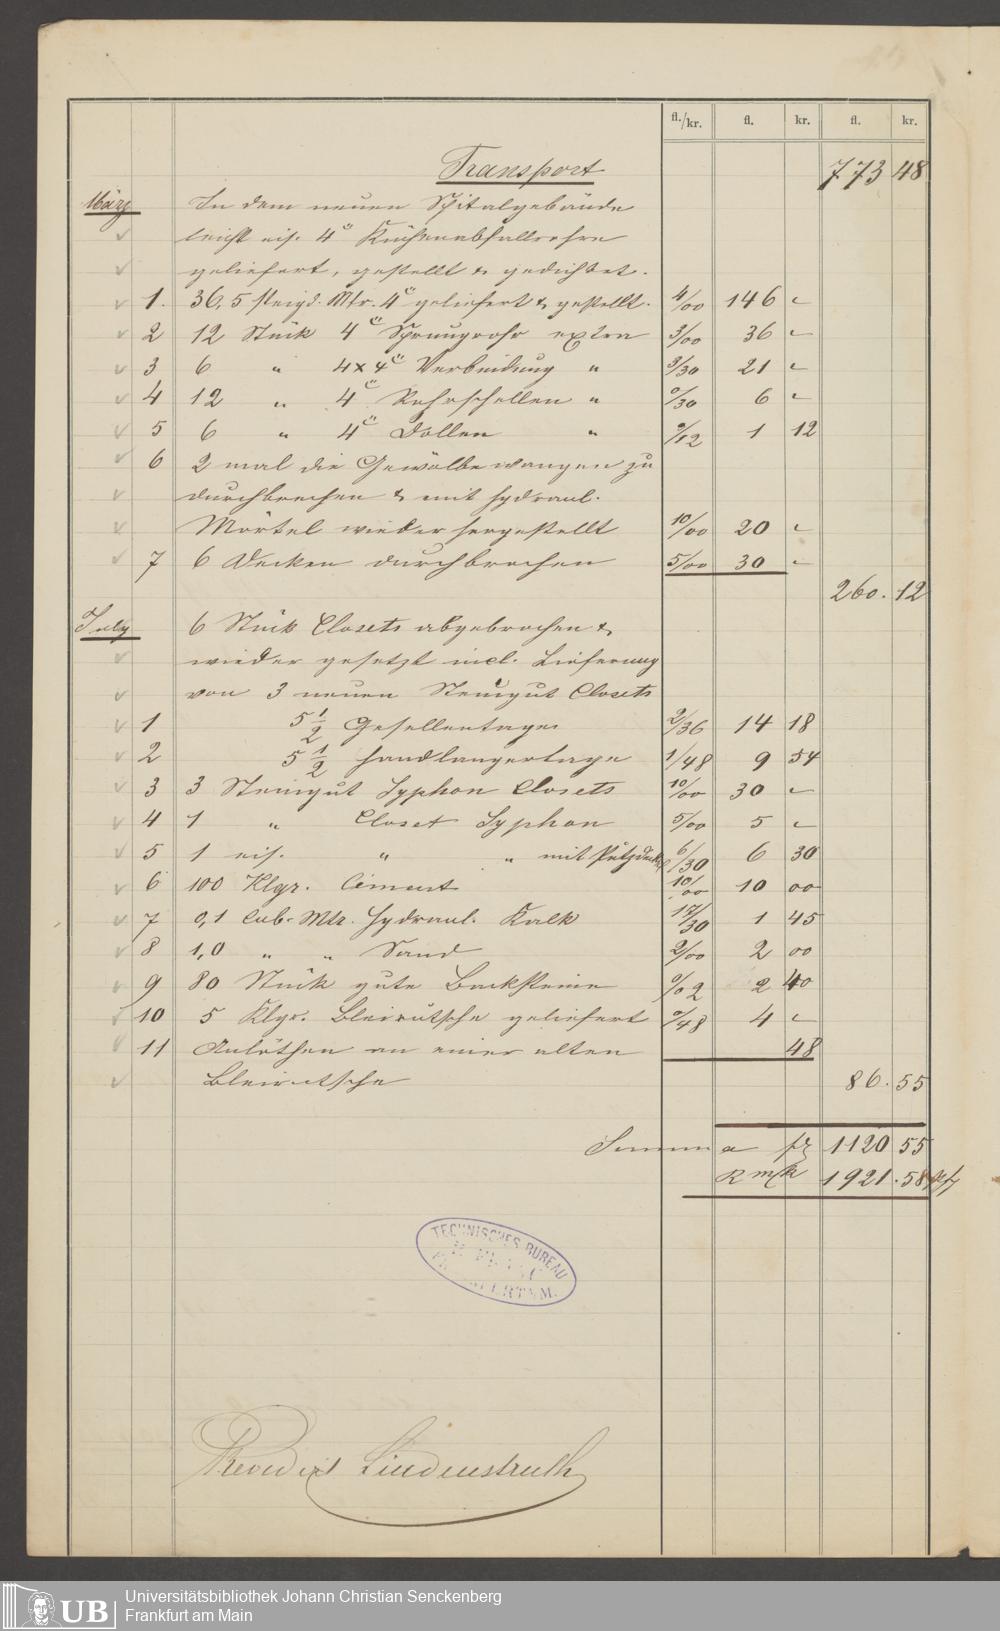 fl./kr. fl. kr. fl. kr.
Transport 773 48
März In dem neuen Spitalgebäude
leicht eis. 4" Küchenabfallrohre
geliefert, gestellt & gedichtet.
1. 36,5 steigd. Mtr. 4" geliefert & gestellt. 4/00 146 -
2 12 Stück 4" Sprungrohr extra 3/00 36 -
3 6 " 4 x 4" Verbindung " 3/30 21 -
4 12 " 4" Rohrschellen " 0/30 6 -
5 6 " 4" Dollen " 0/12 1 12
6 2 mal die Gewölbewangen zu
durchbrechen & mit hydraul.
Mörtel wieder hergestellt 10/00 20 -
7 6 Decken durchbrochen 5/00 30 -
260. 12
July 6 Stück Closets abgebrochen &
wieder gesetzt incl. Lieferung
von 3 neuen Steingut Closets
1 5 1/2 Gesellentage 2/36 14 18
2 5 1/2 Handlangertage 1/48 9 54
3 3 Steingut Syphon Closets 10/00 30 -
4 1 " Closet Syphon 5/00 5 -
5 1 eis. " " mit Putzdeckel 6/30 6 30
6 100 Klgr. Cement 10/00 10 00
7 0,1 Cub. Mtr. hydraul. Kalk 17/30 1 45
8 1,0 " " Sand 2/00 2 00
9 80 Stück gute Backsteine 0/02 2 40
10 5 Klgr. Bleirutsche geliefert 0/48 4 -
11 Anlöthen an einer alten 48
Bleirutsche 86. 55
Summa fl 1120 55
R mk 1921. 58 pf
TECHNISCHES BUREAU
Revidirt Lindenstruth
UB Universitätsbibliothek Johann Christian Senckenberg
Frankfurt am Main